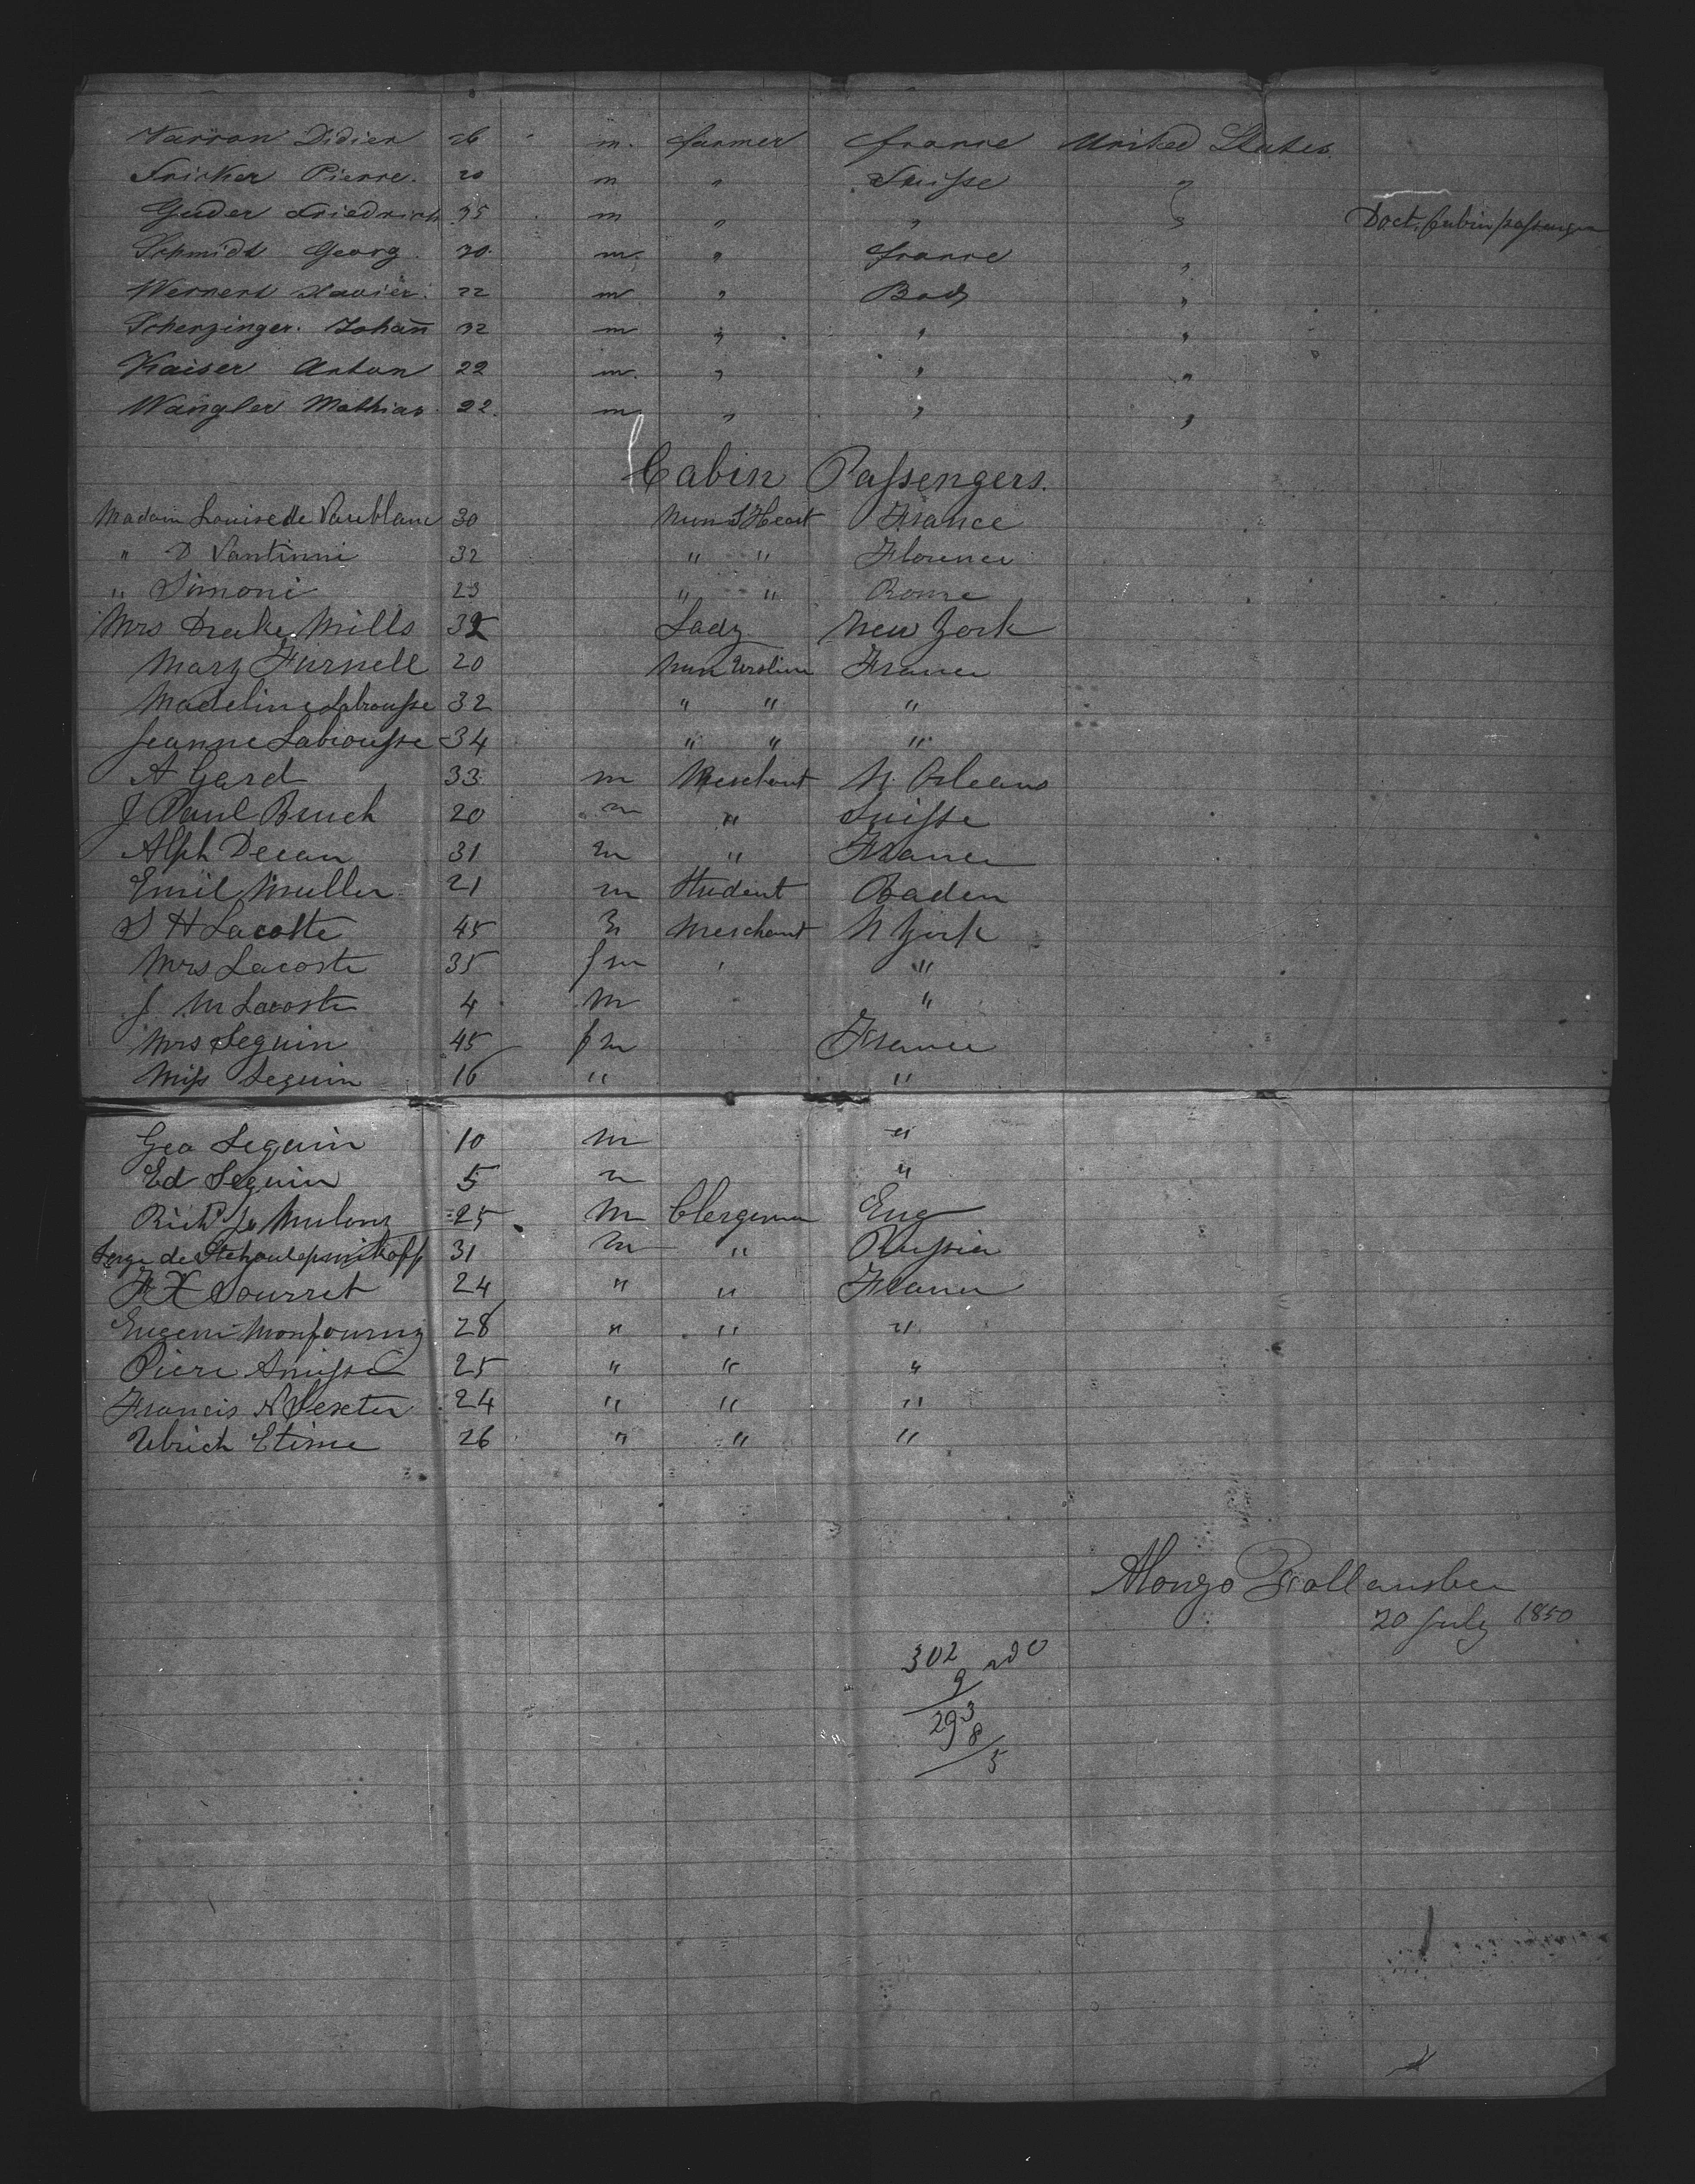 Varron Didier 26 m. farmer france United States
Fricker Pierre. 20 m " Suisse "
Guder Friedrich 35 m " " " Doct. Cabin passenger
Schmidt Georg 30. m. " france "
Wernert Xavier. 22 m " Bad "
Scherzinger. Johan̄ 32 m " " "
Kaiser Anton 22 m. " " "
Wangler Mathias. 22. m " " "
Cabin Passengers.
Madam Louise de Vaublanc 30 Nun S Heart France
" D Santinni 32 " " Florence
" Simoni 23 " " Rome
Mrs Drake Mills 35 Lady New York
Mary Furnell 20 Nun Ursline France
Madeline Labrousse 32 " " "
Jeanne Labrousse 34 " " "
A Gard 33 m Merchant N. Orleans
J Paul Bruch 20 m " Suisse
Alph Decan 31 m " France
Emil Muller 21 m Student Baden
S H Lacoste 45 m Merchant N York
Mrs Lacoste 35 fm "
J. M Lacoste 4 m "
Mrs Seguin 45 fm France
Miss Seguin 16 " "
Geo Seguin 10 m "
Ed Seguin 5 m "
25 m Clergeman Eng
Serge de 31 m " Russia
F X Sourret 24 " " France
Eugeni Monfourny 28 " " "
Piere 25 " " "
Francis A 24 " " "
Ulrich Etime 26 " " "
Alonzo
20 July 1850
302
9
293
8
5